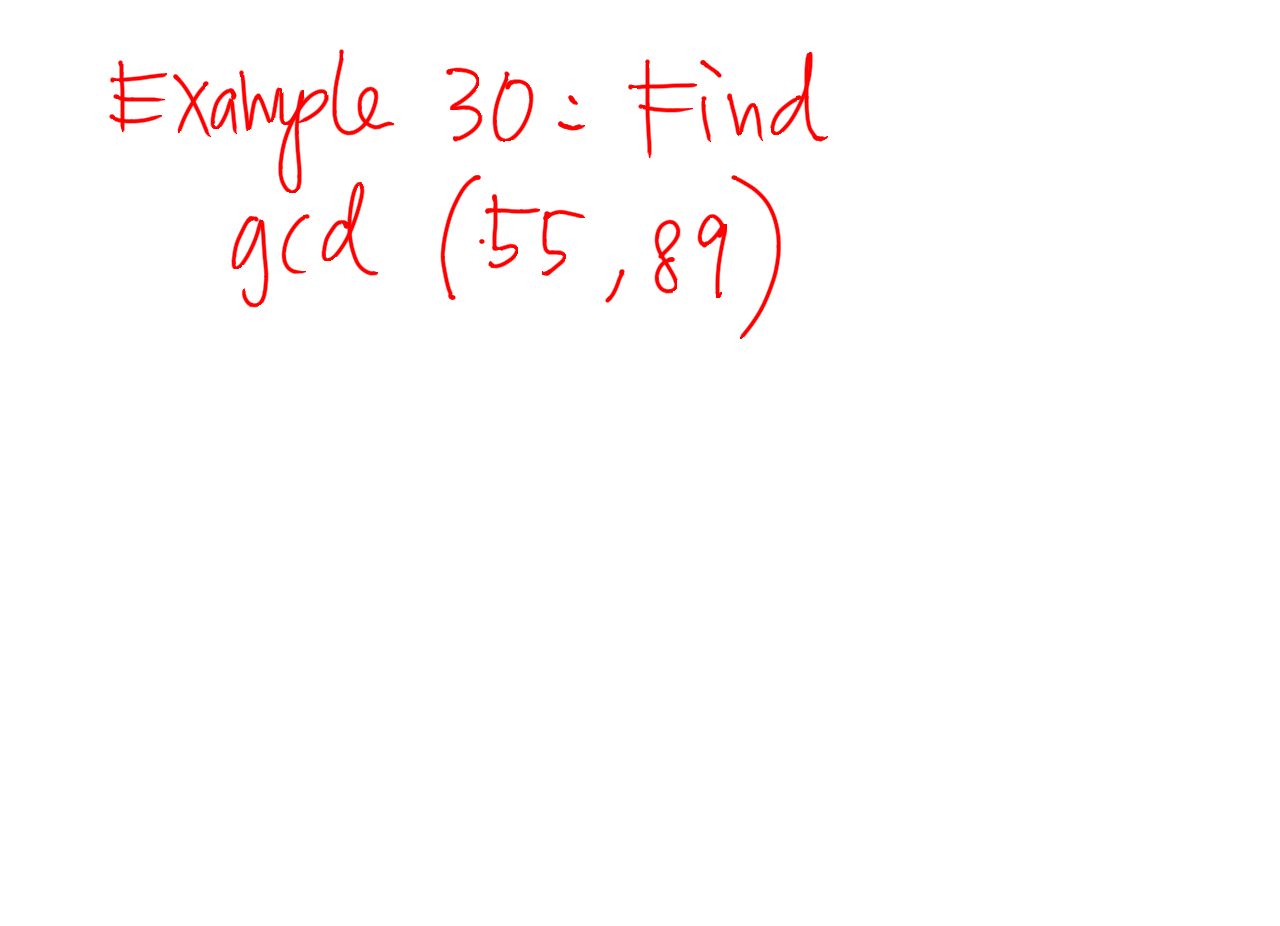 Example 30: Find
gcd (55, 89)